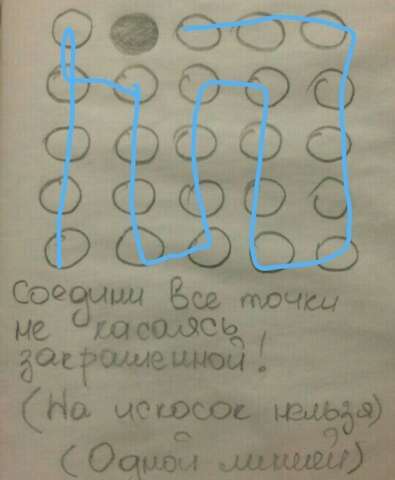 Соедини все точки
не касаясь
закрашенной!
(На искосок нельзя)
(Одной линией)